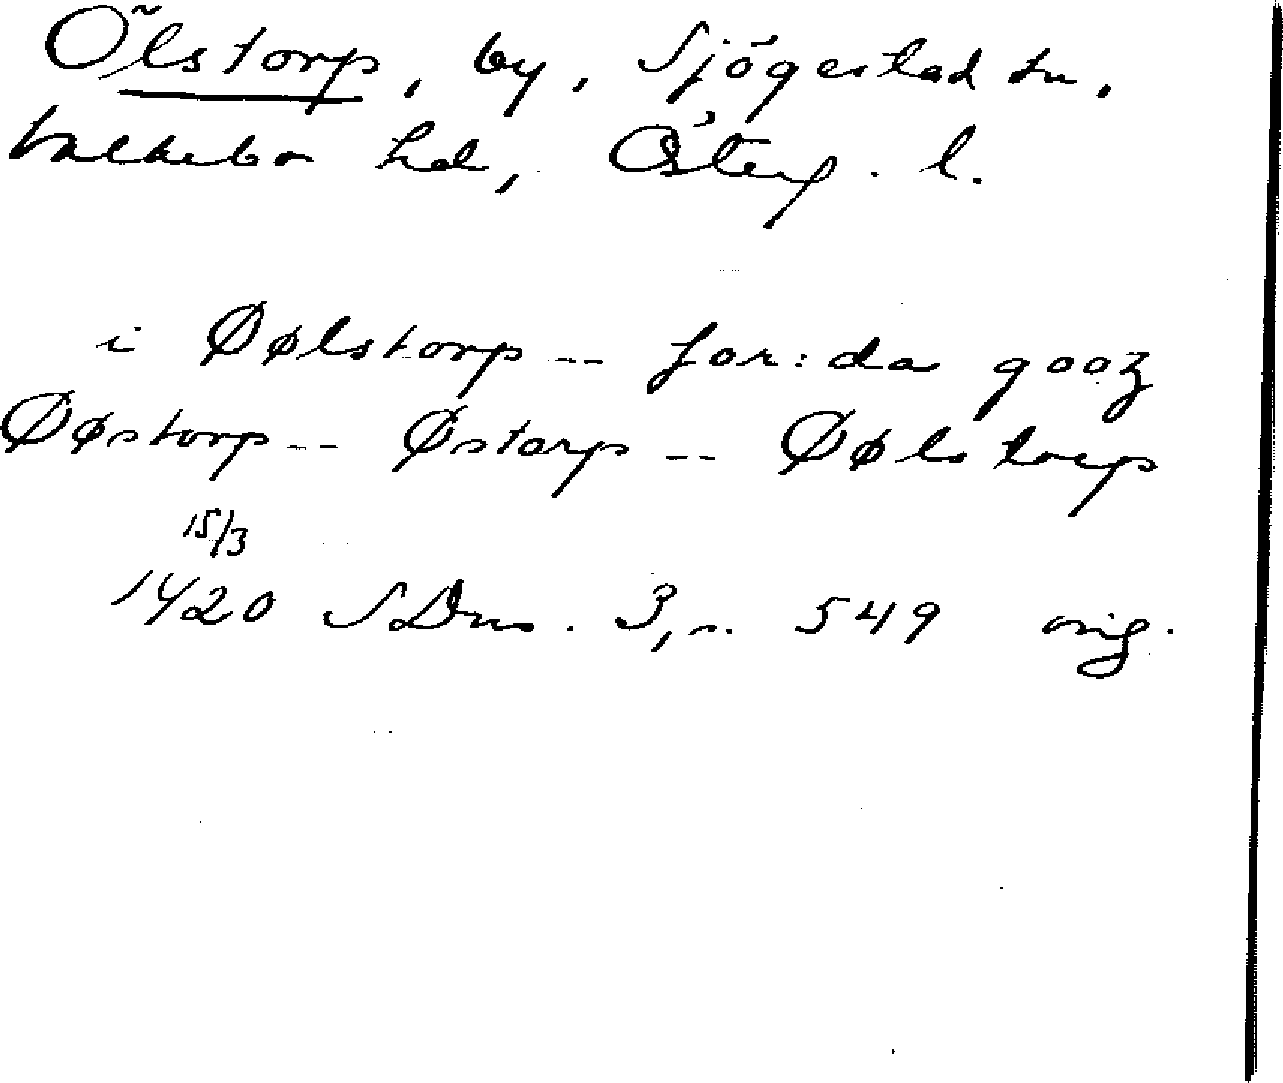 Ölstorp, by, Sjögestad sn,
Valkebo hd, Österg. l.
i Øølstorp -- for:da gooz
Øøstorp -- Østorp -- Øølstorp
15/3
1420 SDns. 3, s. 549 orig.